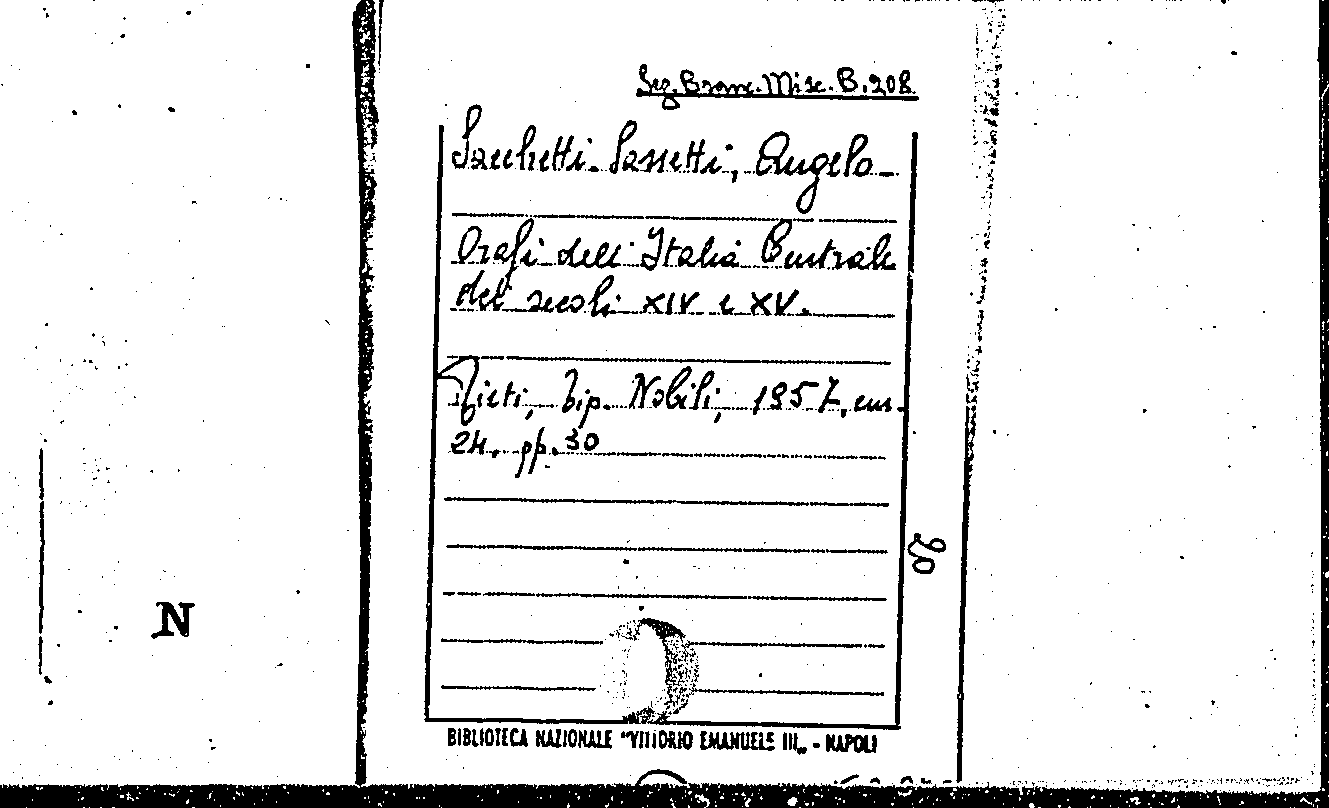 Sez. Branc. Misc. B. 208.
Sacchetti-Sassetti, Angelo-
Orafi dell'Italia Centrale
dei secoli XIV e XV.
Rieti, Tip. Nobili, 1957, cm.
24. pp. 30
20
N
BIBLIOTECA NAZIONALE "VITTORIO EMANUELE III„ - NAPOLI